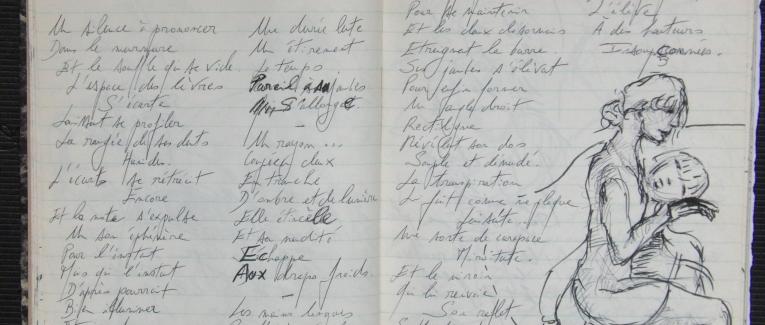 Un silence à prononcer
Dans le murmure
Et le souffle qui se vide.
L'espace des lèvres
S'écarte
Laissant se profiler
La rangée de ses dents
L'écart se rétrécit
Encore
Et la note s'expulse
Un son éphémère
Pour l'instant
Plus qui l'instant
D'après pourrait
Bien illuminer
Une durée lente
Un étirement
Le temps
Pareil à sa jambes
S'allonge
Un rayon...
Couper deux
En tranche
D'ombre et de lumière
Elle étincelle
Et sa nudité
Echappe
Aux draps froids.
Les mains longues
Pour se maintenir
Et les deux désormais
Etreignent la barre.
Ses jambes s'élevat
Pour enfin former
Un angle droit
Rectiligne
Révélant son dos
Souple et dénudé.
La transpiration
Le fait comme
Une sorte de carapace
Miroitante.
Et le miroir
Qui lui renvoie
Son reflet
L'élève
À des hauteurs
Insoupçonnées.